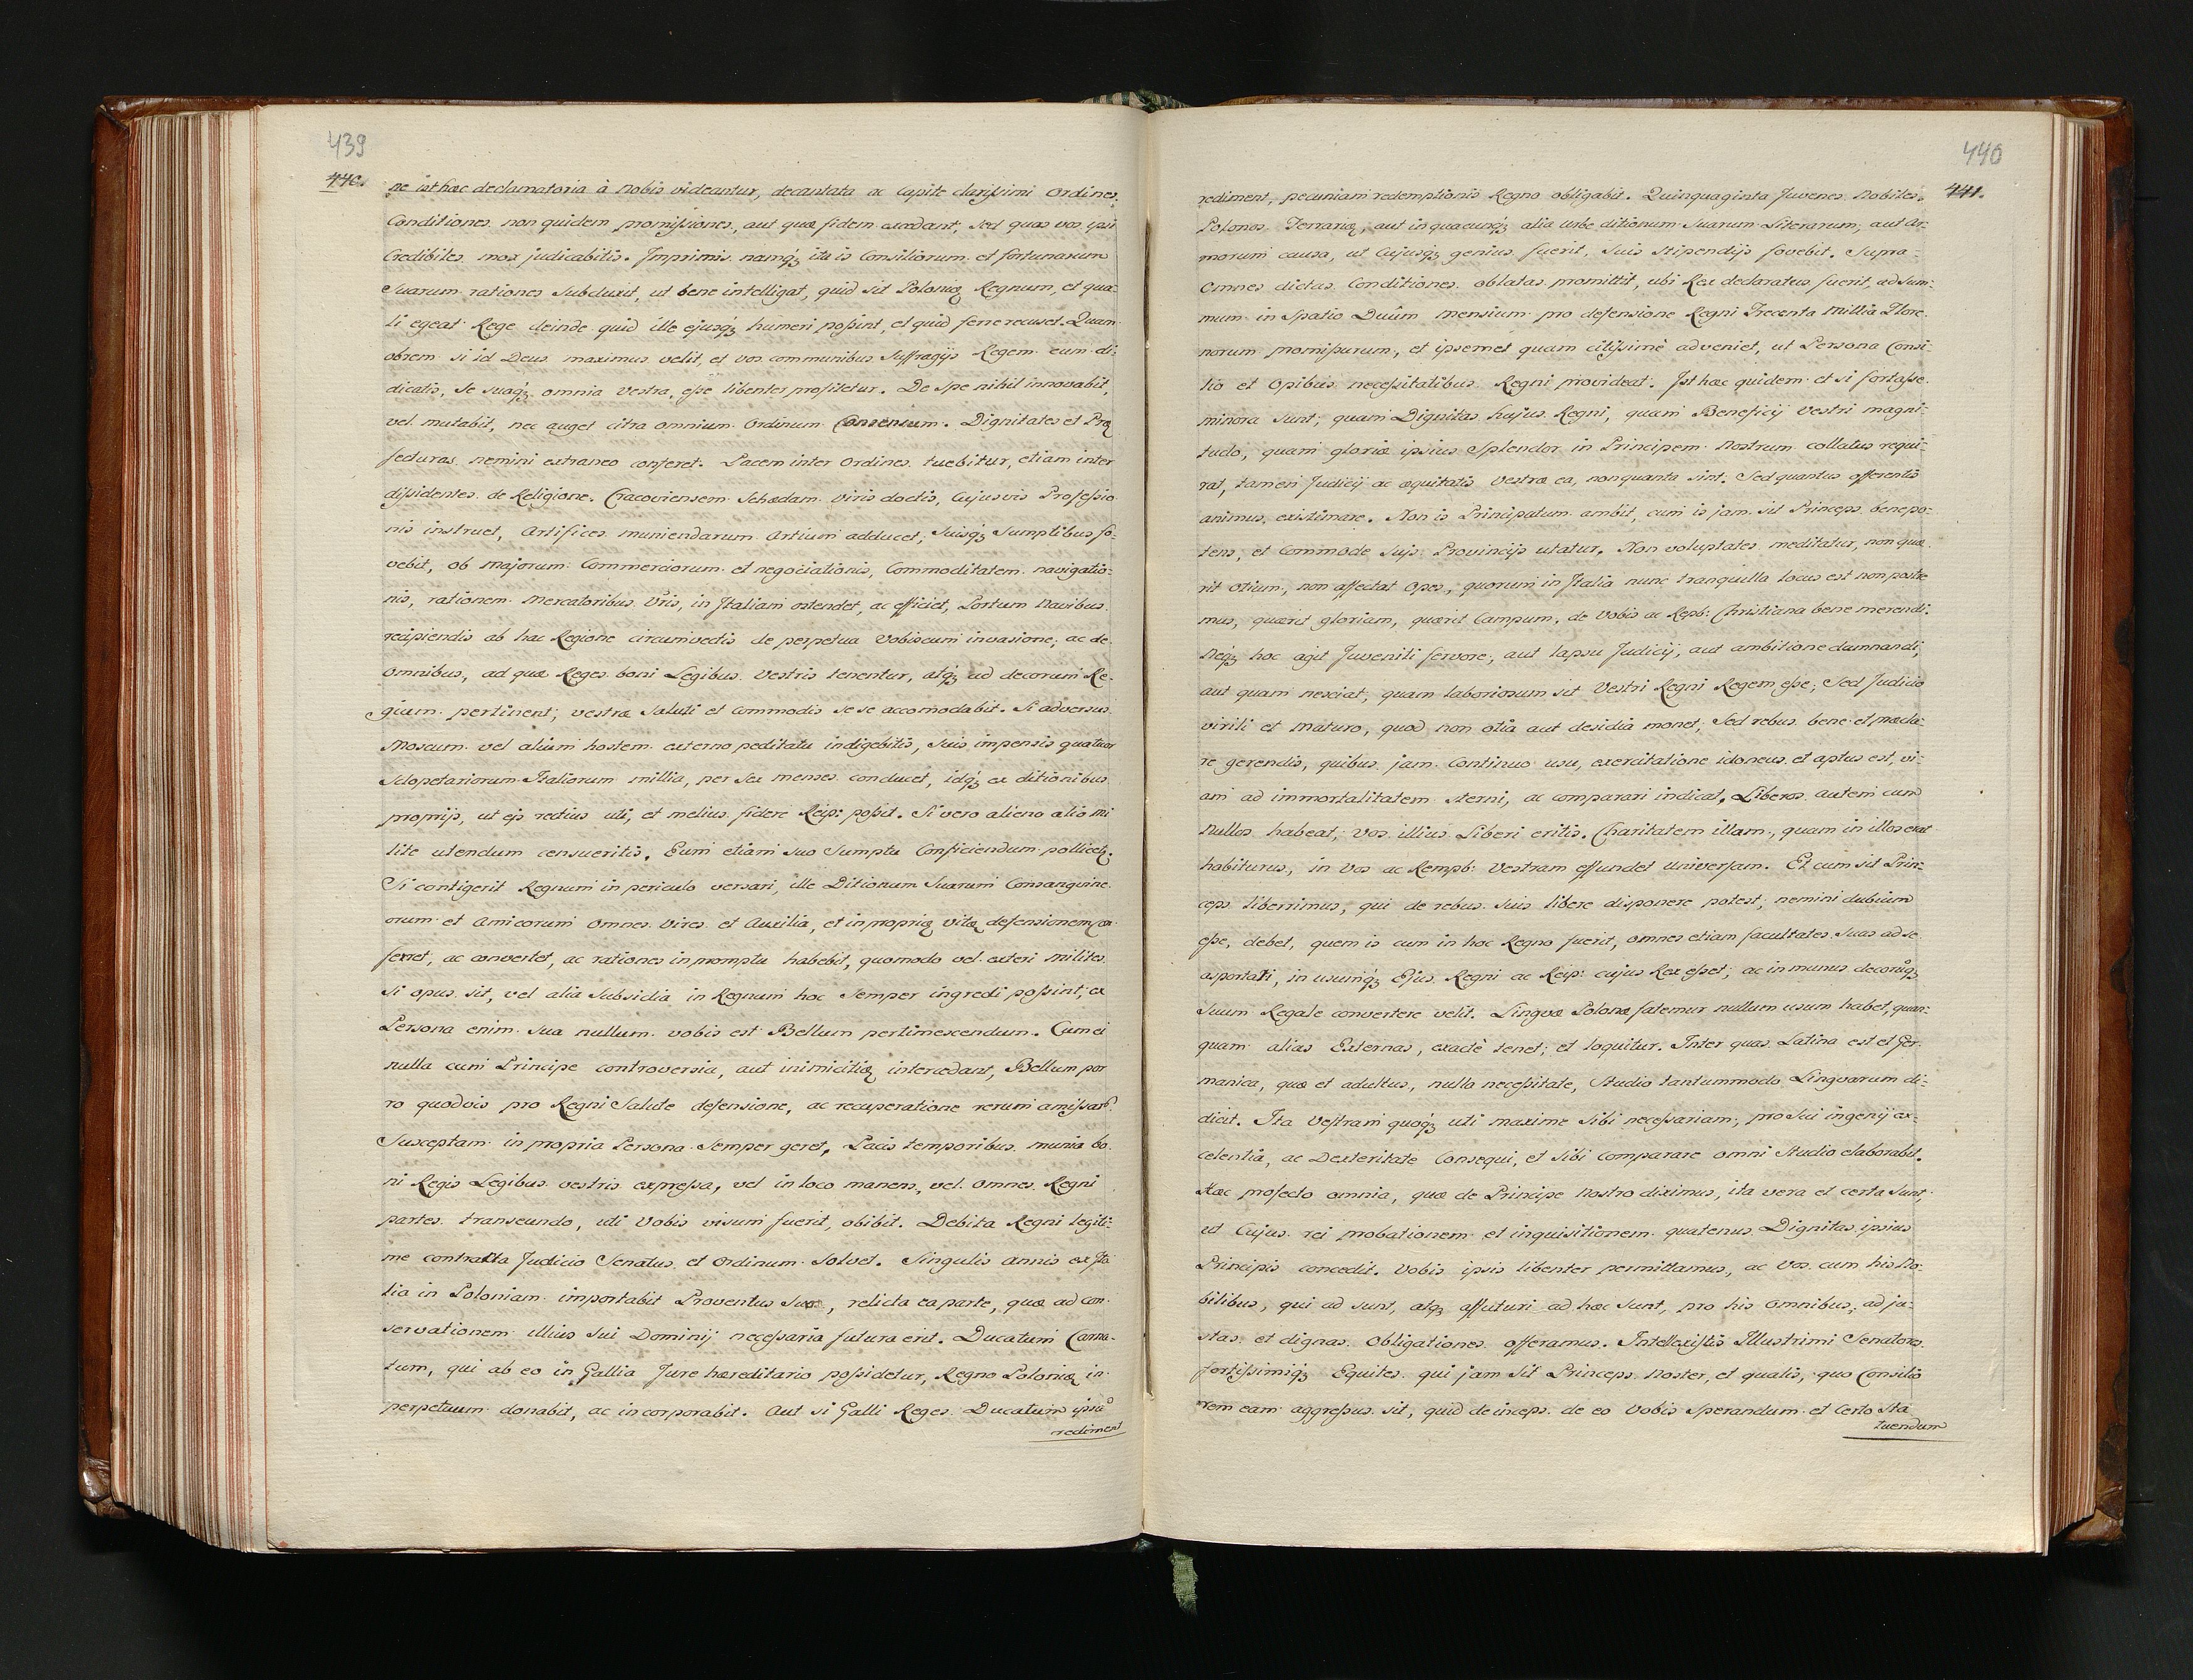 439
440.
ne isthaec declamatoria à nobis videantur, decantata ac Capite clarissimi Ordines.
Conditiones non quidem promissiones, aut quae fidem excedant, sed quas vos ipsi
Credibiles mox judicabitis. Imprimis namq; ita is Consiliorum et fortunarum
Suarum rationes Subduxit, ut bene intelligat, quid sit Poloniae Regnum, et qua-
li egeat Rege deinde quid ille ejusq; humeri possint, et quid ferre recuset. Quam
obrem si id Deus maximus velit, et vos communibus Suffragijs Regem eum di-
dicatis, Se suaq; omnia vestra esse libenter profitetur. De Spe nihil innovabit,
vel mutabit, nec auget citra omnium Ordinum Consensum. Dignitates et Prae
fecturas nemini extraneo conferet. Pacem inter Ordines tuebitur, etiam inter
dissidentes de Religione. Cracoviensem Scholam viris doctis, Cujusvis Professio
nis instruet, Artifices muniendarum Artium adducet, Suisq; Sumptibus fo-
vebit, ob majorum Commerciorum et negociationis, Commoditatem navigatio-
nis, rationem Mercatoribus Vris, in Italiam ostendet, ac efficiet, Portum Navibus
recipiendis ab hac Regione circumvectis de perpetua Vobiscum invasione, ac de
omnibus, ad quae Reges boni Legibus Vestris tenentur, atq; ad decorum Re-
gium pertinent; vestrae Saluti et Commodis sese accomodabit. Si adversus
Moscum vel alium hostem externo peditatu indigebitis, suis impensis quatuor
Sclopetariorum Italiorum millia, per Sex menses conducet, idq; ex ditionibus
proprijs, ut ijs rectius uti, et melius fidere Reip: possit. Si vero alieno alio mi
lite utendum censueritis, Eum etiam suo Sumptu Conficiendum pollicetr.
Si contigerit Regnum in periculo versari, ille Ditionum Suarum Consanguine
orum et Amicorum Omnes Vires et Auxilia, et in propriae Vitae defensionem con
ferret, ac convertet, ac rationes in promptu habebit, quomodo vel exteri Milites
si opus sit, vel alia Subsidia in Regnum hoc Semper ingredi possint, ex
Persona enim sua nullum vobis est Bellum pertimescendum. Cum ei
nulla cum Principe controversia, aut inimicitiae intercedant, Bellum por
ro quodvis pro Regni Salute defensione, ac recuperatione rerum amissar:
Susceptam in propria Persona Semper geret, Pacis temporibus munia bo
ni Regis Legibus vestris expressa, vel in loco manens, vel omnes Regni
partes transeundo, uti Vobis visum fuerit, obibit. Debita Regni legiti-
me contracta Judicio Senatus et Ordinum Solvet. Singulis annis ex Ita
lia in Poloniam importabit Proventus Suos, relicta ea parte, quae ad con-
servationem illius sui Dominij necessaria futura erit. Ducatum Carna-
tum, qui ab eo in Gallia Jure haereditario possidetur, Regno Poloniae in
perpetuum donabit, ac incorporabit. Aut si Galli Reges Ducatum ipsum
rediment
440
441.
rediment, pecuniam redemptionis Regno obligabit. Quinquaginta Juvenes Nobiles
Polonos Ferrariae, aut in quacunq; alia Urbe ditionum Suarum Literarum, aut Ar-
morum causa, ut Cujusq; genius fuerit, Suis Stipendijs fovebit. Supra-
omnes dictas Conditiones oblatas promittit, ubi Rex declaratus fuerit, ad sum-
mum in Spatio Duûm mensium pro defensione Regni Trecenta Millia Flore-
norum promissurum, et ipsemet quam citissimè adveniet, ut Persona Consi-
lio et Opibus necessitatibus Regni provideat. Ist haec quidem et si fortasse
minora sunt, quam Dignitas hujus Regni, quam Beneficij Vestri magni-
tudo, quam gloriae ipsius Splendor in Principem Nostrum collatus requi-
rat, tamen Judicij ac aequitatis Vestrae ea, non quanta sint. Sed quantus offerentis
animus, existimare. Non is Principatum ambit, cum is jam sit Princeps benepo-
tens, et Commode suis Provincijs utatur. Non voluptates meditatur, non quae
rit otium, non affectat Opes, quorum in Italia nunc tranquilla locus est non postre
mus, quaerit gloriam, quaerit Campum, de Vobis ac Repb: Christiana bene merendi.
Neq; hoc agit Juvenili fervore, aut lapsu Judicij, aut ambitione damnandi,
aut quam nesciat, quam laboriosum sit Vestri Regni Regem esse; Sed Judicio
virili et maturo, quod non otia aut desidia monet, Sed rebus bene et praecla-
re gerendis, quibus jam Continuo usu, exercitatione idoneus et aptus est, vi-
am ad immortalitatem sterni, ac comparari indicat. Liberos autem cum
Nullos habeat, Vos illius Liberi eritis. Charitatem illam, quam in illos erat
habiturus, in Vos ac Rempb: Vestram effundet Universam. Et cum sit Prin-
ceps liberrimus, qui de rebus suis libere disponere potest, nemini dubium
esse, debet, quem is cum in hoc Regno fuerit, omnes etiam facultates Suas ad se
asportari, in usumq; Ejus Regni ac Reip: cujus Rex esset, ac in munus decorūq;
suum Regale convertere velit. Linguae Polonae fatemur nullum usum habet, quan-
quam alias Externas, exactè tenet, et loquitur. Inter quas Latina est et Ger-
manica, quae et adultus, nulla necessitate, Studio tantummodo Linguarum di-
dicit. Ita Vestram quoq; uti maxime Sibi necessariam, pro Sui ingenij ex-
celentia, ac Dexteritate Consequi, et Sibi Comparare omni Studio elaborabit.
Haec profecto omnia, quae de Principe Nostro diximus, ita vera et certa Sunt,
ut Cujus rei probationem et inquisitionem quatenus Dignitas ipsius
Principis concedit. Vobis ipsis libenter permittamus, ac Vos cum his No-
bilibus, qui ad sunt, atq; affuturi ad haec Sunt, pro his omnibus, ad ju-
stas et dignas Obligationes offeramus. Intellexistis Illustrimi Senatores
fortissimiq; Equites qui jam sit Princeps Noster, et qualis, quo Consilio
rem eam aggressus sit, quid deinceps de eo Vobis Sperandum et Certo Sta
tuendum